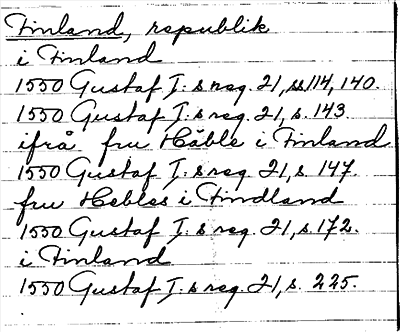 Finland, republik
i Finland
1550 Gustaf I:s reg. 21, ss 114, 140.
1550 Gustaf I:s reg. 21, s. 143
ifrå fru Häble i Finland
1550 Gustaf I:s reg. 21, s. 147.
fru Hebles i Findland
1550 Gustaf I:s reg. 21, s. 172.
i Finland
1550 Gustaf I:s reg. 21, s. 225.